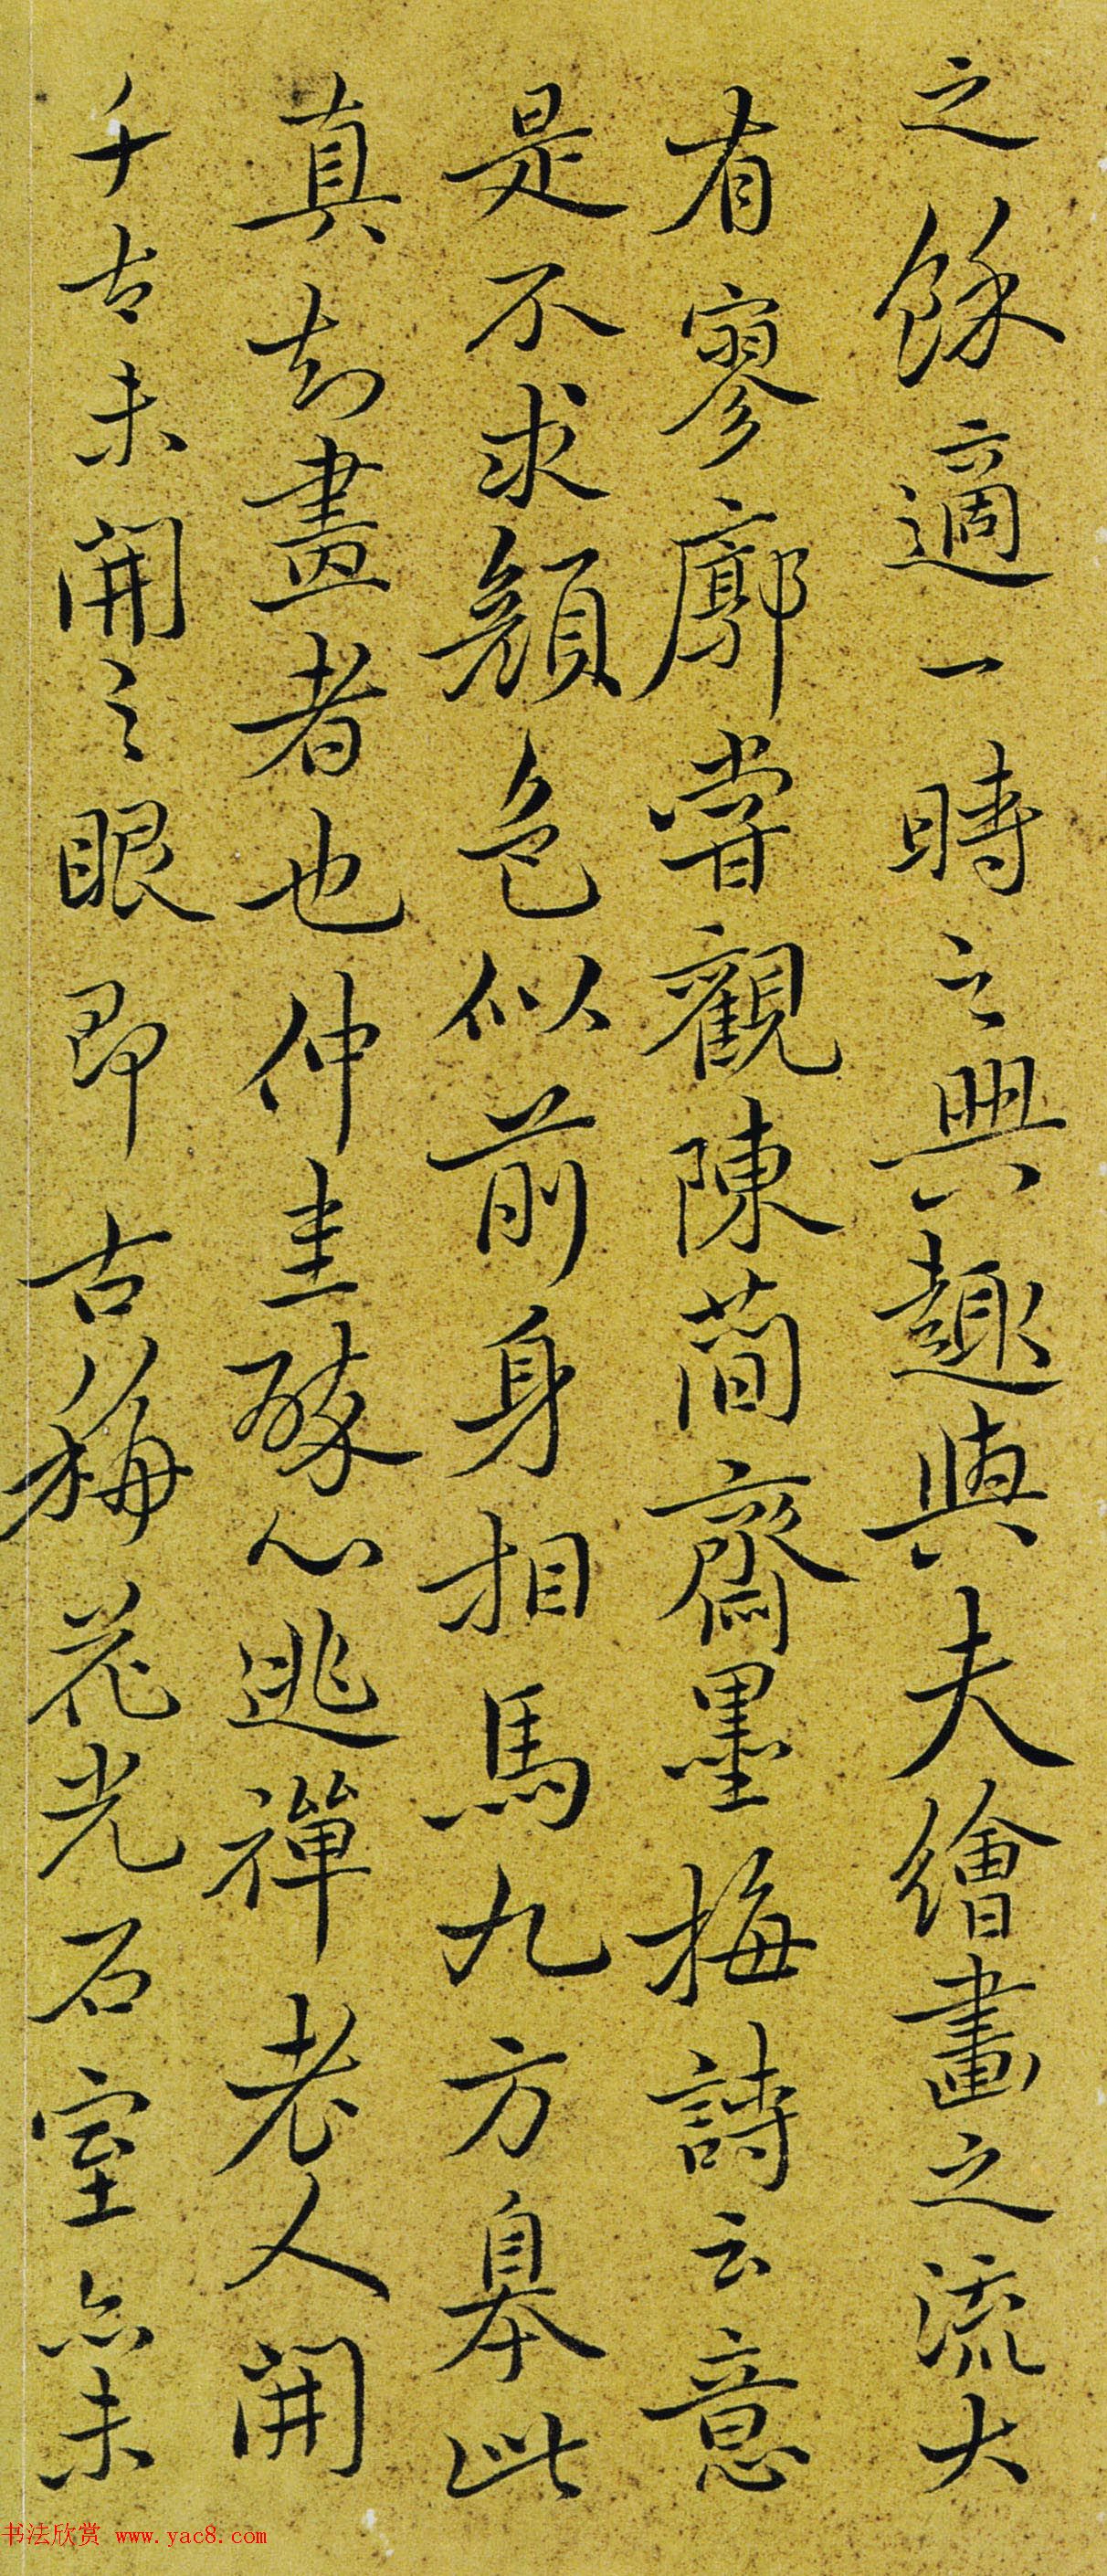 之餘適一時之興趣與夫繪畫之流大
有寥廓嘗觀陳簡齋墨梅詩云意
是不求顏色似前身相馬九方皋此
真知畫者也仲圭豚心逃禪老人開
千古未開之眼即古梅花光石室亦未
书法欣赏 www.yac8.com